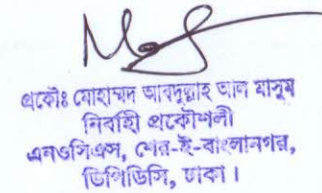 প্রকৌঃ মোহাম্মদ আবদুল্লাহ আল মাসুম
নির্বাহী প্রকৌশলী
এনওসিএস, শের-ই-বাংলানগর,
ডিপিডিসি, ঢাকা।